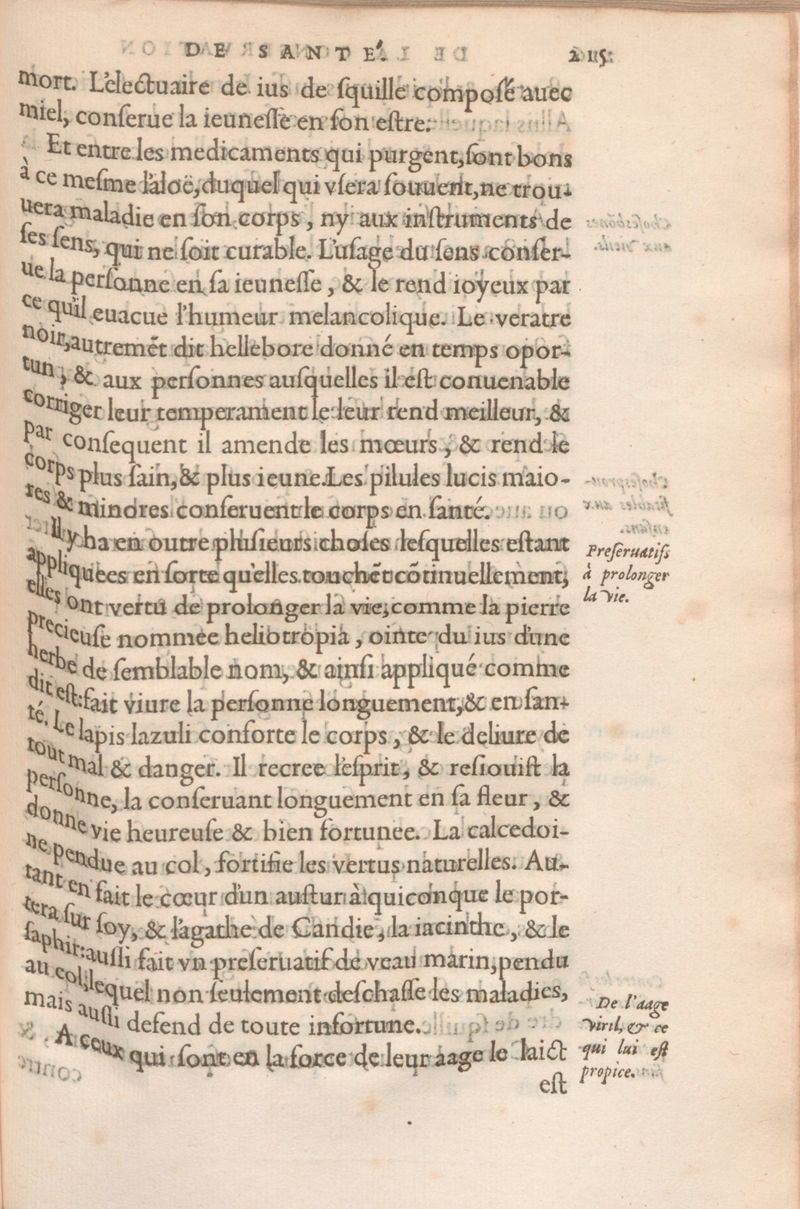 DE SANTE. 215
mort. L'electuaire de ius de ſquille compoſé auec
miel, conſerue la ieuneſſe en ſon eſtre.
Et entre les medicaments qui purgent, ſont bons
à ce meſme l'aloë, duquel qui vſera ſouuent, ne trou-
uera maladie en ſon corps, ny aux inſtruments de
ſes ſens, qui ne ſoit curable. L'uſage du ſens conſer-
ue la perſonne en ſa ieuneſſe, & le rend ioyeux par
ce quil euacue l'humeur melancolique. Le veratre
noir, autremēt dit hellebore donné en temps opor-
tun, & aux perſonnes auſquelles il eſt conuenable
corriger leur temperament le leur rend meilleur, &
par conſequent il amende les mœurs, & rend le
corps plus ſain, & plus ieune. Les pilules lucis maio-
res & minores conſeruent le corps en ſanté.
Il y ha en outre pluſieurs choſes leſquelles eſtant
appliquées en ſorte qu'elles touchēt cōtinuellement,
elles ont vertu de prolonger la vie, comme la pierre
precieuſe nommée heliotropia, ointe du ius d'une
herbe de ſemblable nom, & ainſi appliqué comme
dit eſt: fait viure la perſonne longuement, & en ſan-
té. Le lapis lazuli conforte le corps, & le deliure de
tout mal & danger. Il recree l'eſprit, & reſiouiſt la
perſonne, la conſeruant longuement en ſa fleur, &
donne vie heureuſe & bien fortunée. La calcedoi-
ne pendue au col, fortifie les vertus naturelles. Au-
tant en fait le cœur d'un auſtur à quiconque le por-
tera ſur ſoy, & l'agathe de Candie, la iacinthe, & le
ſaphir: auſſi fait vn preſeruatif de veau marin, pendu
au col, lequel non ſeulement deſchaſſe les maladies,
mais auſſi defend de toute infortune.
A ceux qui ſont en la force de leur aage le laict
eſt
Preſeruatifs
à prolonger
la vie.
De l'aage
viril, & ce
qui lui eſt
propice.